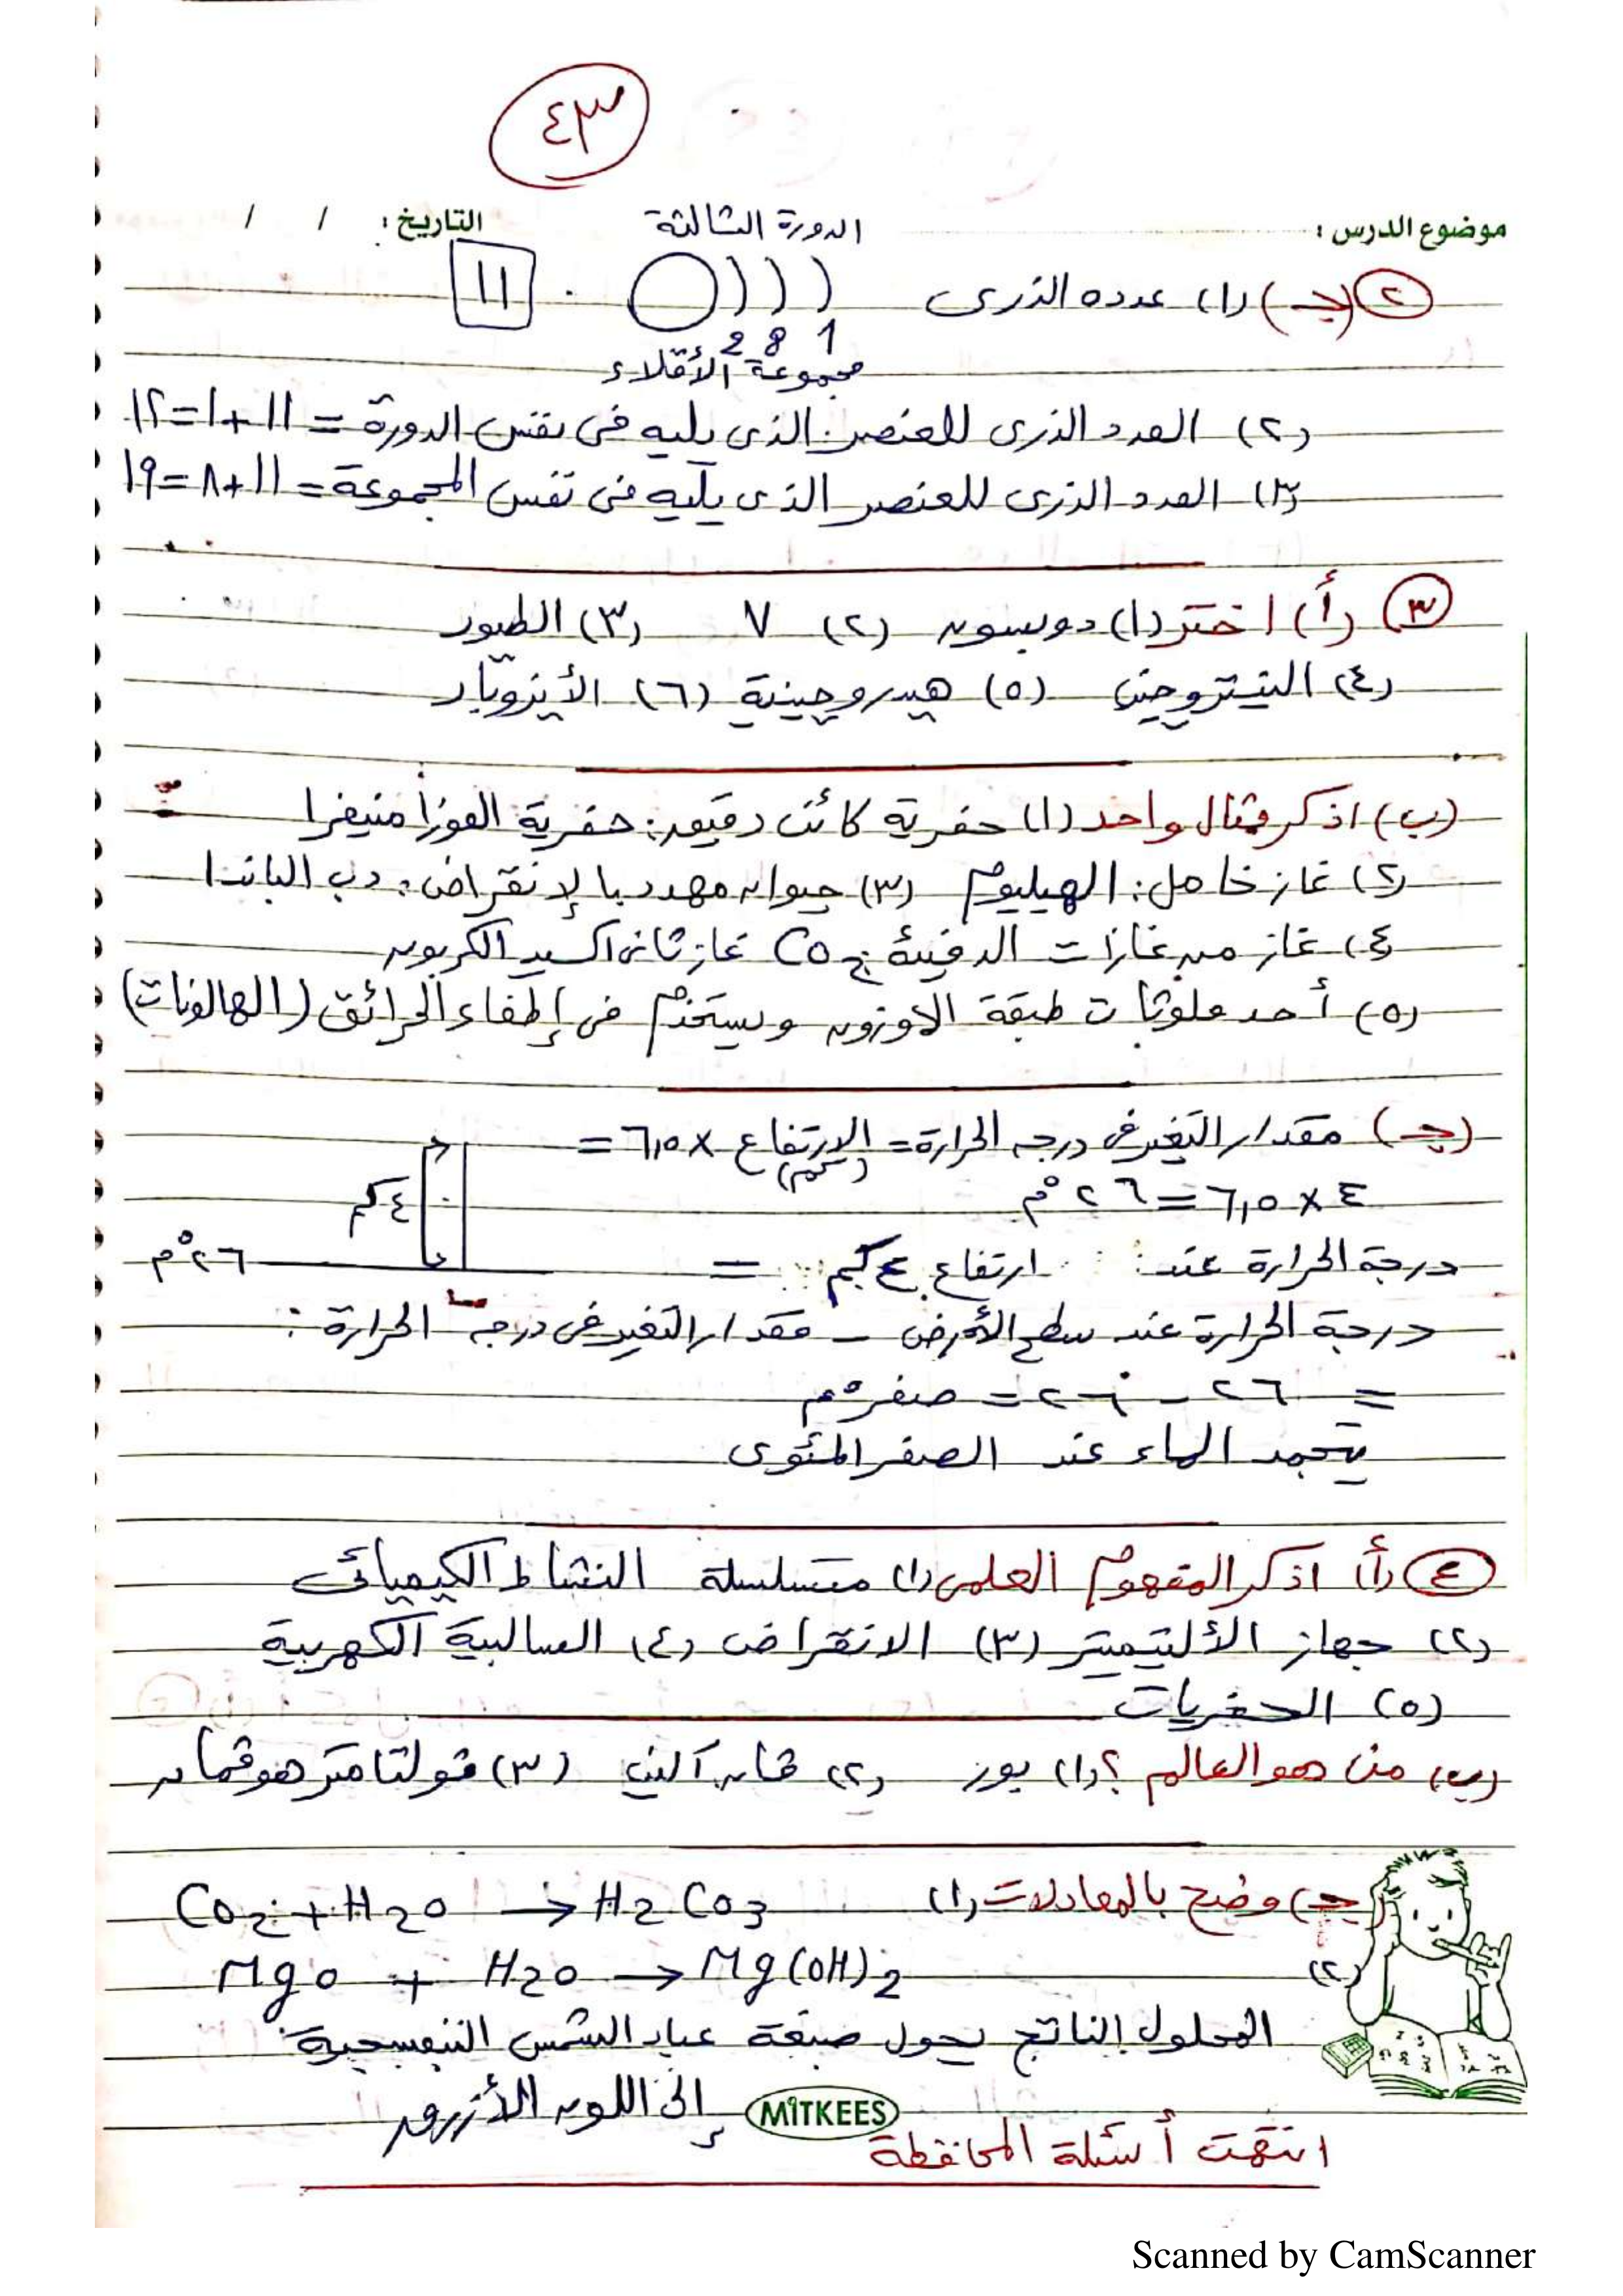 ٤٣
موضوع الدرس : الدورة الثالثة التاريخ : / /
٢ (جـ) (١) عدده الذرى ١١
2 8 1
مجموعة الأقلاء
(٢) العدد الذرى للعنصر الذى يليه فى نفس الدورة = ١١ + ١ = ١٢
(٣) العدد الذرى للعنصر الذى يليه فى نفس المجموعة = ١١ + ٨ = ١٩
٣ (أ) اختر (١) دوبسون (٢) ٧ (٣) الطيور
(٤) النيتروجين (٥) هيدروجينية (٦) الأيزوبار
(ب) اذكر مثال واحد (١) حفرية كائن دقيق : حفرية الفورامنيفرا
(٢) غاز خامل : الهيليوم (٣) حيوان مهدد بالإنقراض : دب الباندا
(٤) غاز من غازات الدفيئة CO2 غاز ثانى اكسيد الكربون
(٥) أحد ملوثات طبقة الاوزون ويستخدم فى إطفاء الحرائق (الهالونات)
(جـ) مقدار التغير فى درجه الحرارة = الإرتفاع × ٦,٥ =
(كم)
٤ × ٦,٥ = ٢٦ °م
٤ كم
درجة الحرارة عند ارتفاع ٤ كم = ٢٦ °م
درجة الحرارة عند سطح الأرض – مقدار التغير فى درجه الحرارة :
= ٢٦ – ٢٦ = صفر °م
يتجمد الماء عند الصفر المئوى
٤ (أ) اذكر المفهوم العلمى (١) متسلسلة النشاط الكيميائى
(٢) جهاز الألتيميتر (٣) الانقراض (٤) السالبية الكهربية
(٥) الحفريات
(ب) من هو العالم ؟ (١) بور (٢) ڤان آلين (٣) ڤولتامتر هوڤمان
(جـ) وضح بالمعادلات (١) CO2 + H2O → H2CO3
(٢) MgO + H2O → Mg(OH)2
المحلول الناتج يحول صبغة عباد الشمس البنفسجية
إلى اللون الأزرق
MITKEES
انتهت أسئلة المحافظة
Scanned by CamScanner